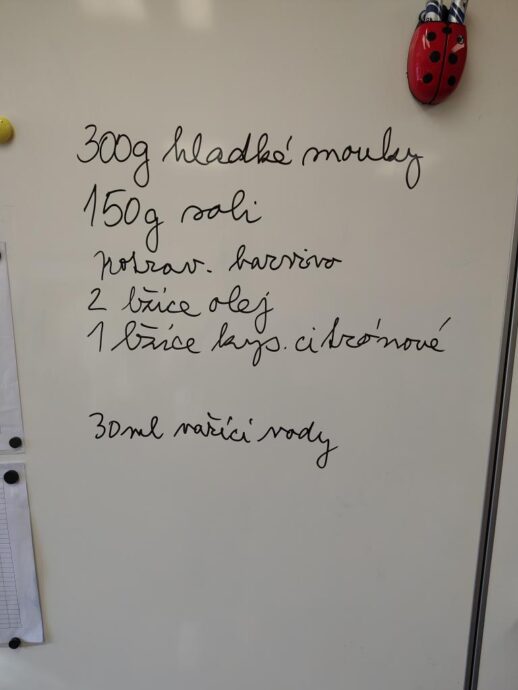 300g hladké mouky
150g soli
potrav. barvivo
2 lžíce olej
1 lžíce kys. citrónové
30ml vařící vody